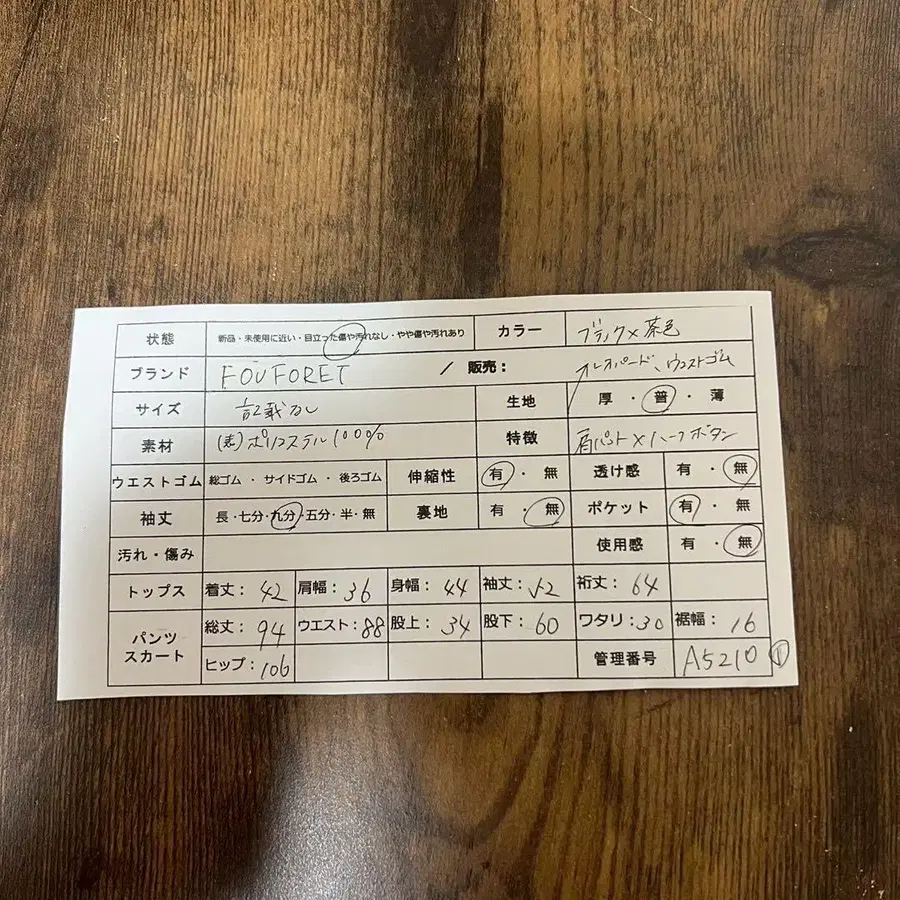 状態 新品・未使用に近い・目立った傷や汚れなし・やや傷や汚れあり カラー ブラック×茶色
ブランド FOU FORET / 販売： レオパード、ウエストゴム
サイズ 記載なし 生地 厚・普・薄
素材 (表)ポリエステル100% 特徴 肩パット×ハーフボタン
ウエストゴム 総ゴム・サイドゴム・後ろゴム 伸縮性 有・無 透け感 有・無
袖丈 長・七分・九分・五分・半・無 裏地 有・無 ポケット 有・無
汚れ・傷み 使用感 有・無
トップス 着丈：42 肩幅：36 身幅：44 袖丈：52 裄丈：64
パンツ スカート 総丈：94 ウエスト：88 股上：34 股下：60 ワタリ：30 裾幅：16
ヒップ：106 管理番号 A5210